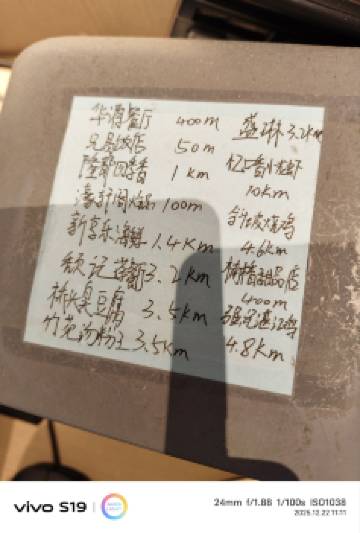 华润餐厅 400m
兄弟饭店 50m
隆帮四季香 1km
火锅 100m
新京乐海鲜 1.4Km
记 3.2Km
桥头臭豆腐 3.5km
竹苑汤粉王 3.5Km
盛琳 3.2km
忆口香小龙虾
10Km
烧鸡
4.6km
甜品店
400m
强兄湛江鸡
4.8Km
vivo S19
24mm f/1.88 1/100s ISO1038
2025.12.22 11:11